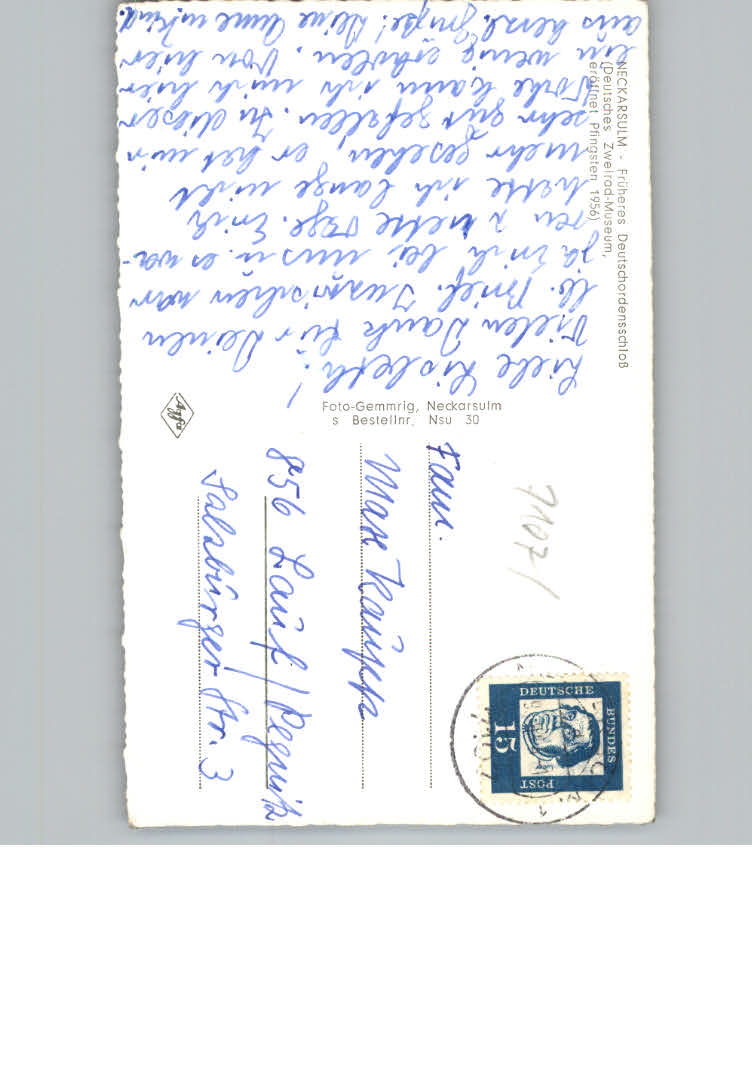 NECKARSULM - Früheres Deutschordensschloß
(Deutsches Zweirad-Museum,
eröffnet Pfingsten 1956)
Liebe Lisbeth!
Vielen Dank für Deinen
lb. Brief. Inzwischen war
ja Erich bei uns u. es wa-
ren nette Tge. Erich
hatte ich lange nicht
mehr gesehen, er hat mir
sehr gut gefallen. In dieser
Woche kann ich mich hier
ein wenig erholen. Von hier
aus herzl. Grüße! Deine Anne
Foto-Gemmrig, Neckarsulm
s Bestellnr. Nsu 30
Agfa
71071
Fam.
Max Kaupp
856 Lauf / Pegnitz
Salzburger Str. 3
DEUTSCHE
BUNDES
POST
15